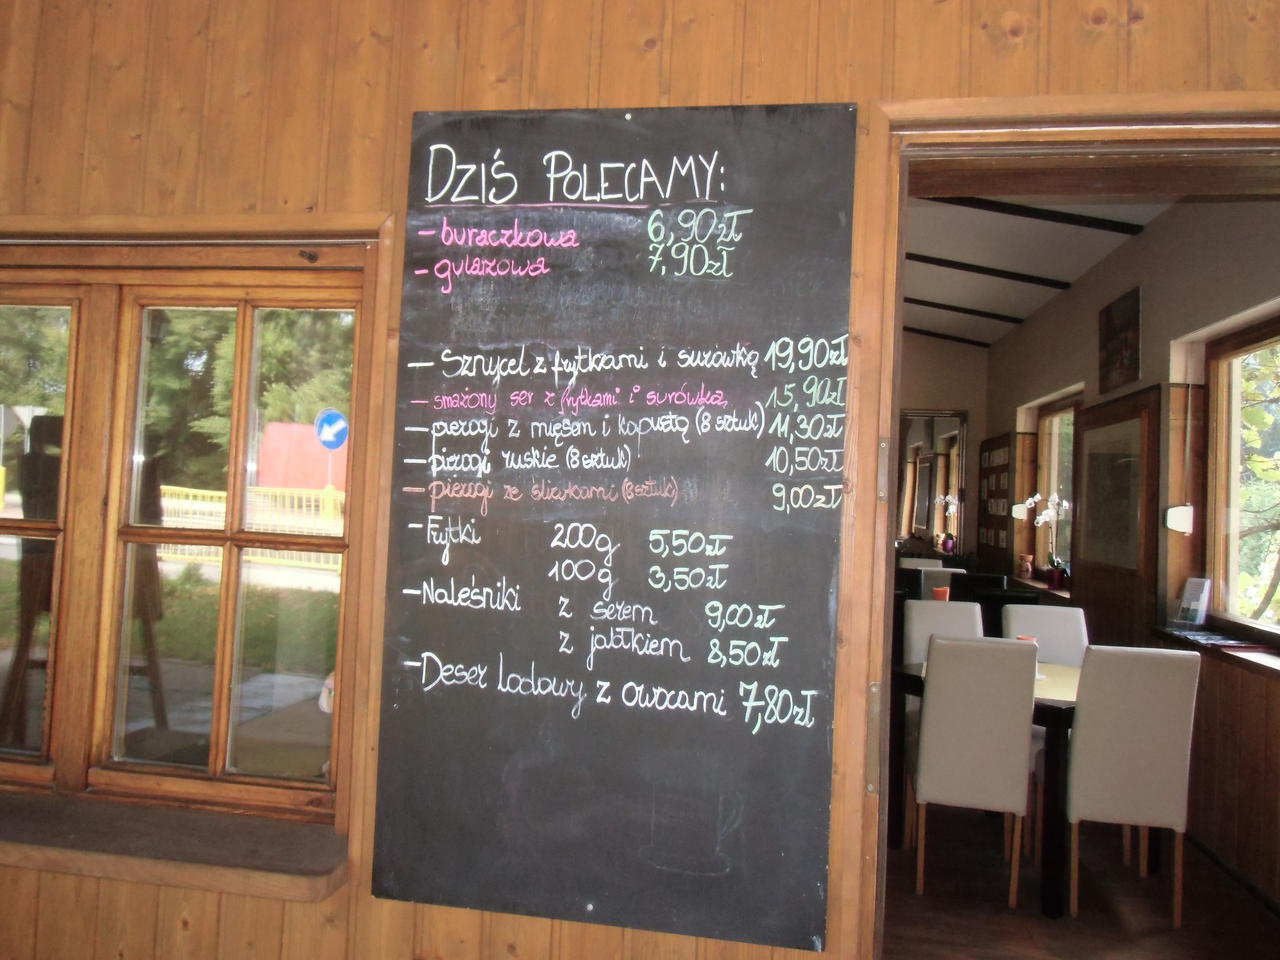 DZIŚ POLECAMY:
- buraczkowa 6,90zł
- gulaszowa 7,90zł
- Sznycel z frytkami i surówką 19,90zł
- smażony ser z frytkami i surówką 15,90zł
- pierogi z mięsem i kapustą (8 sztuk) 11,30zł
- pierogi ruskie (8 sztuk) 10,50zł
- pierogi ze śliwkami (8 sztuk) 9,00zł
- Frytki 200g 5,50zł
100g 3,50zł
- Naleśniki z serem 9,00zł
z jabłkiem 8,50zł
- Deser lodowy z owocami 7,80zł